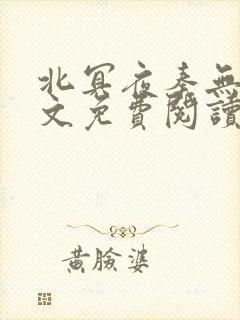 北冥夜奏無
文免費閱讀
黃臉婆